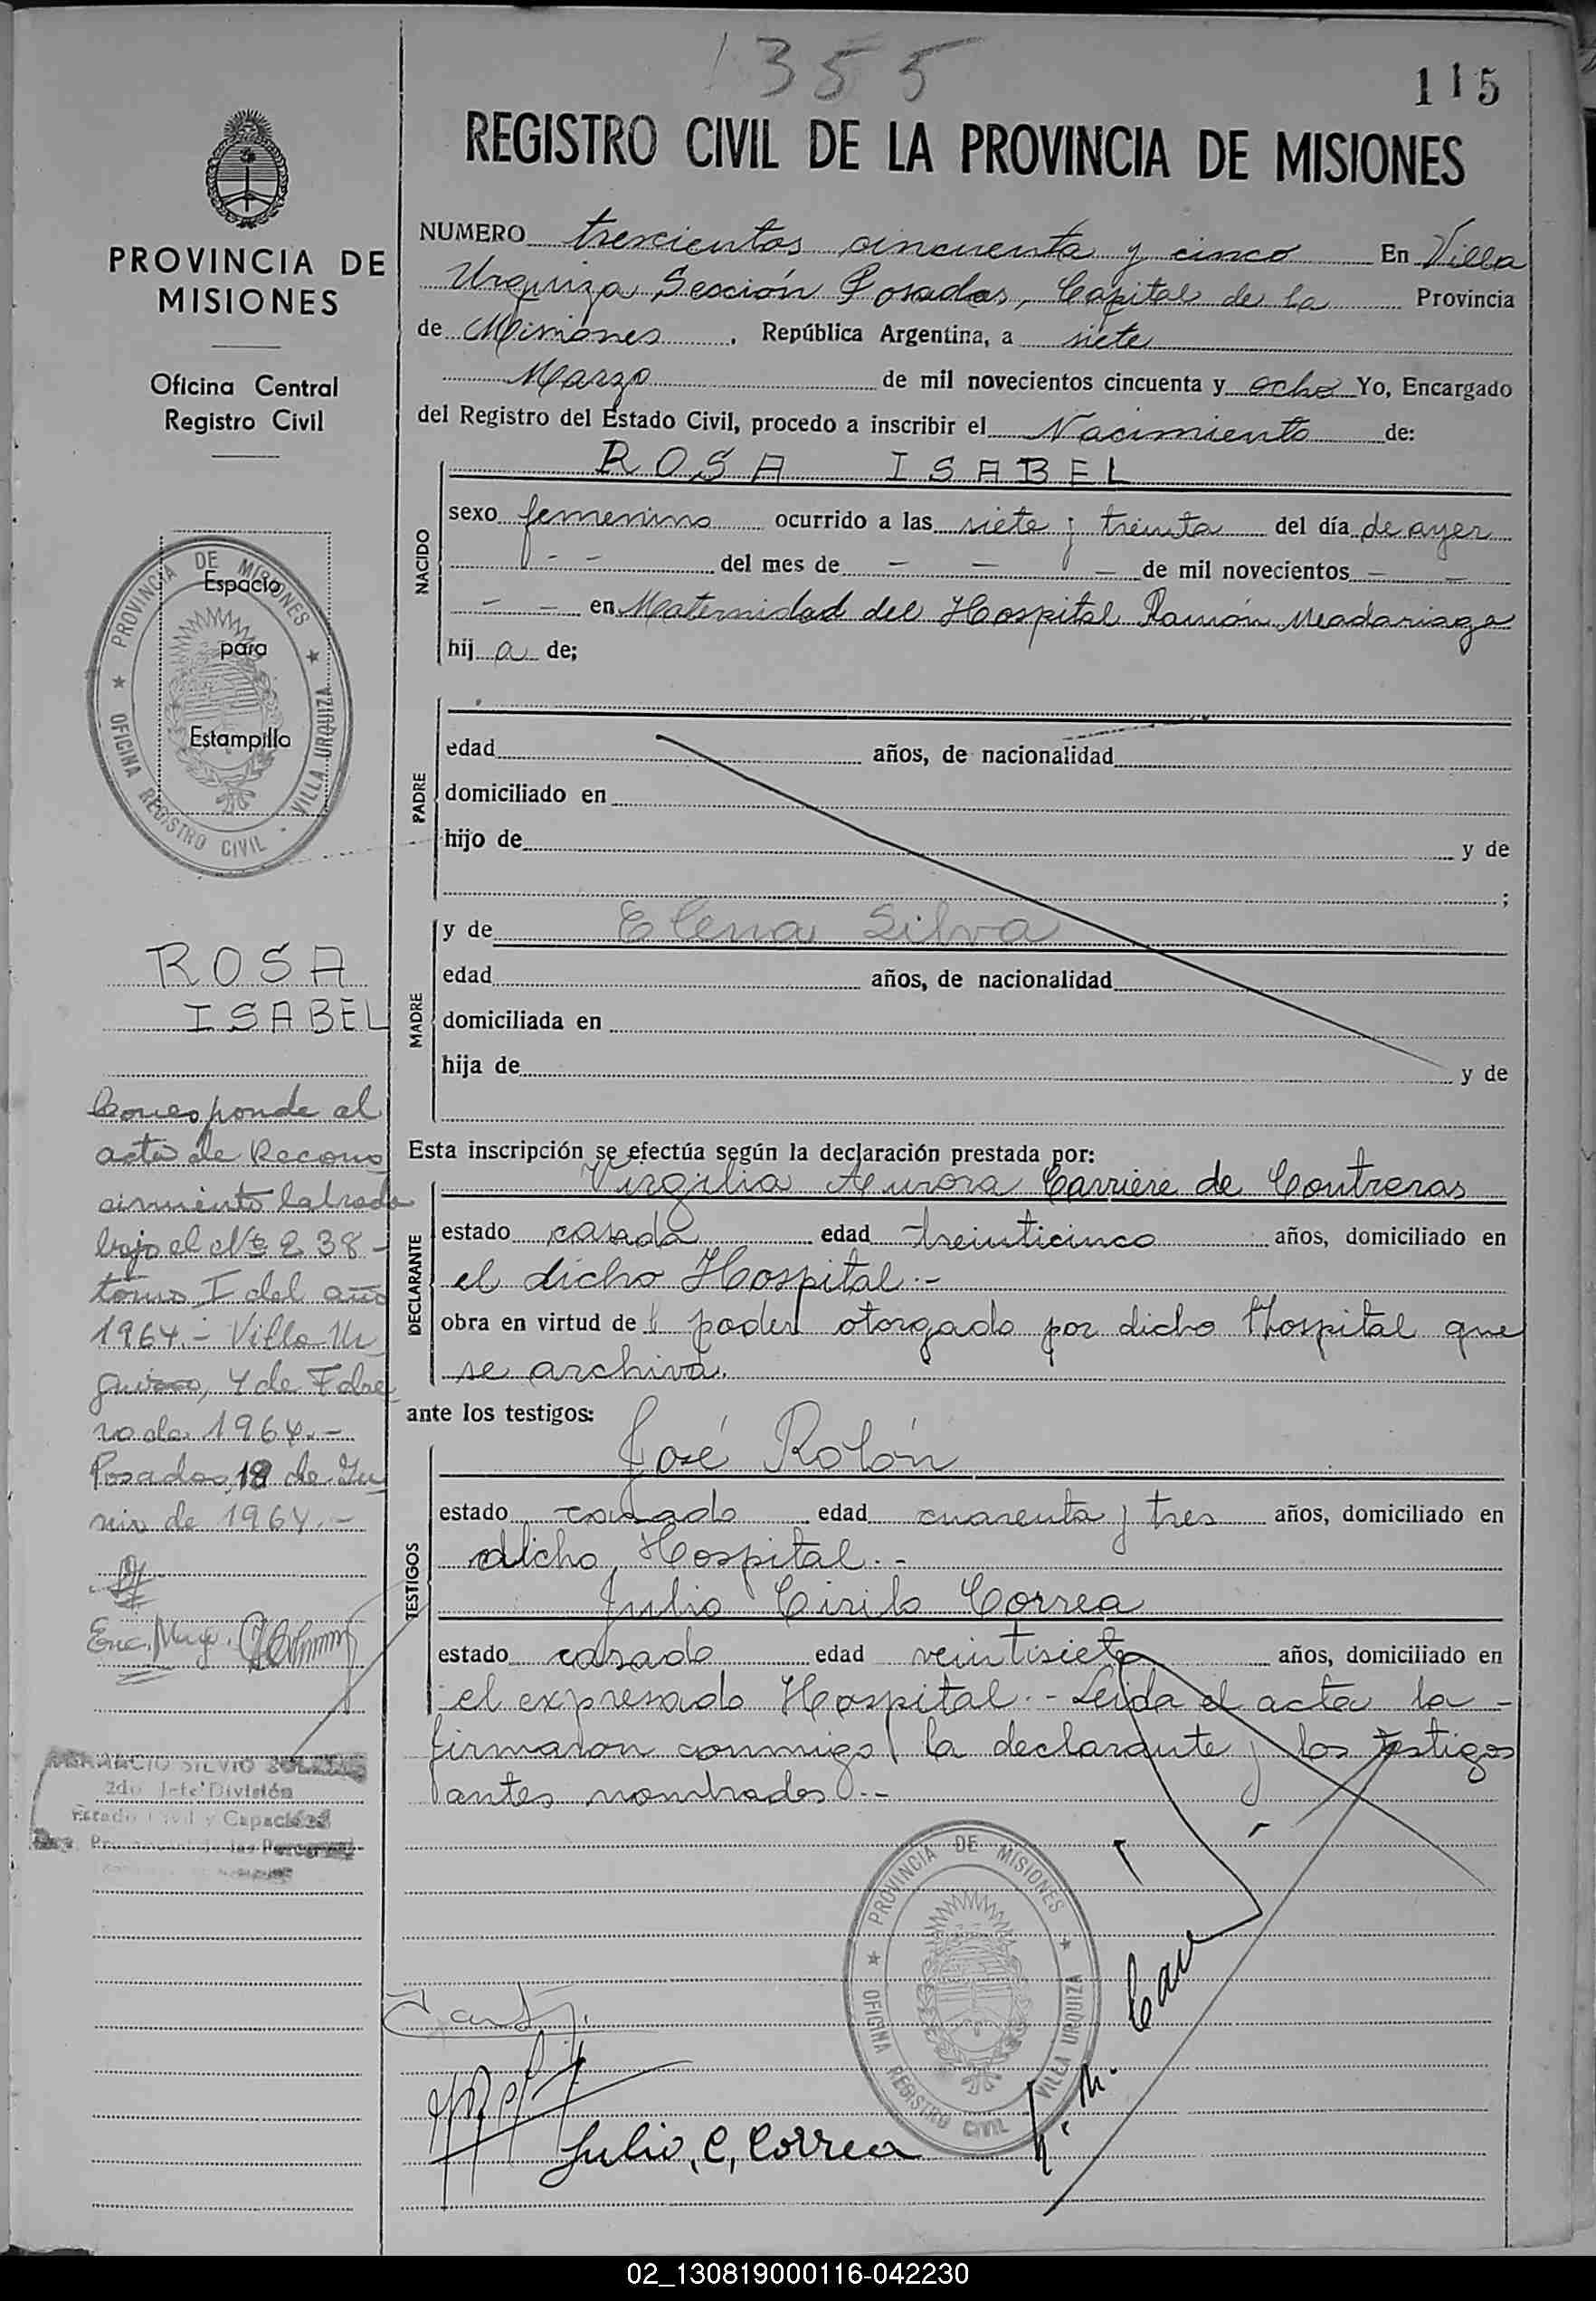 1355
115
REGISTRO CIVIL DE LA PROVINCIA DE MISIONES
PROVINCIA DE
MISIONES
Oficina Central
Registro Civil
NUMERO trescientos cincuenta y cinco En Villa
Urquiza Sección Posadas, Capital de la Provincia
de Misiones. República Argentina, a siete
Marzo de mil novecientos cincuenta y ocho Yo, Encargado
del Registro del Estado Civil, procedo a inscribir el Nacimiento de:
NACIDO
ROSA ISABEL
sexo femenino ocurrido a las siete y treinta del día de ayer
- - del mes de - - - de mil novecientos - -
- - en Maternidad del Hospital Ramón Madariaga
hij a de;
PROVINCIA DE MISIONES
OFICINA REGISTRO CIVIL - VILLA URQUIZA
Espacio
para
Estampilla
PADRE
edad años, de nacionalidad
domiciliado en
hijo de y de
;
MADRE
y de Elena Silva
edad años, de nacionalidad
domiciliada en
hija de y de
ROSA
ISABEL
Corresponde al
acta de Recono
cimiento labrada
bajo el Nº 238-
tomo I del año
1964.- Villa Ur
quiza, 4 de Febre
ro de 1964.-
Posadas, 18 de Ju
nio de 1964.-
Esta inscripción se efectúa según la declaración prestada por:
DECLARANTE
Virgilia Aurora Carriere de Contreras
estado casada edad treinticinco años, domiciliado en
el dicho Hospital.-
obra en virtud de l poder otorgado por dicho Hospital que
se archiva.
ante los testigos:
TESTIGOS
José Rolón
estado casado edad cuarenta y tres años, domiciliado en
dicho Hospital.-
Julio Cirilo Correa
estado casado edad veintisiete años, domiciliado en
el expresado Hospital.- Leida el acta la -
firmaron conmigo la declarante y los testigos
antes nombrados.-
SILVIO
2do Jefe División
Estado Civil y Capacidad
PROVINCIA DE MISIONES
OFICINA REGISTRO CIVIL VILLA URQUIZA
Julio, C, Correa
02_130819000116-042230